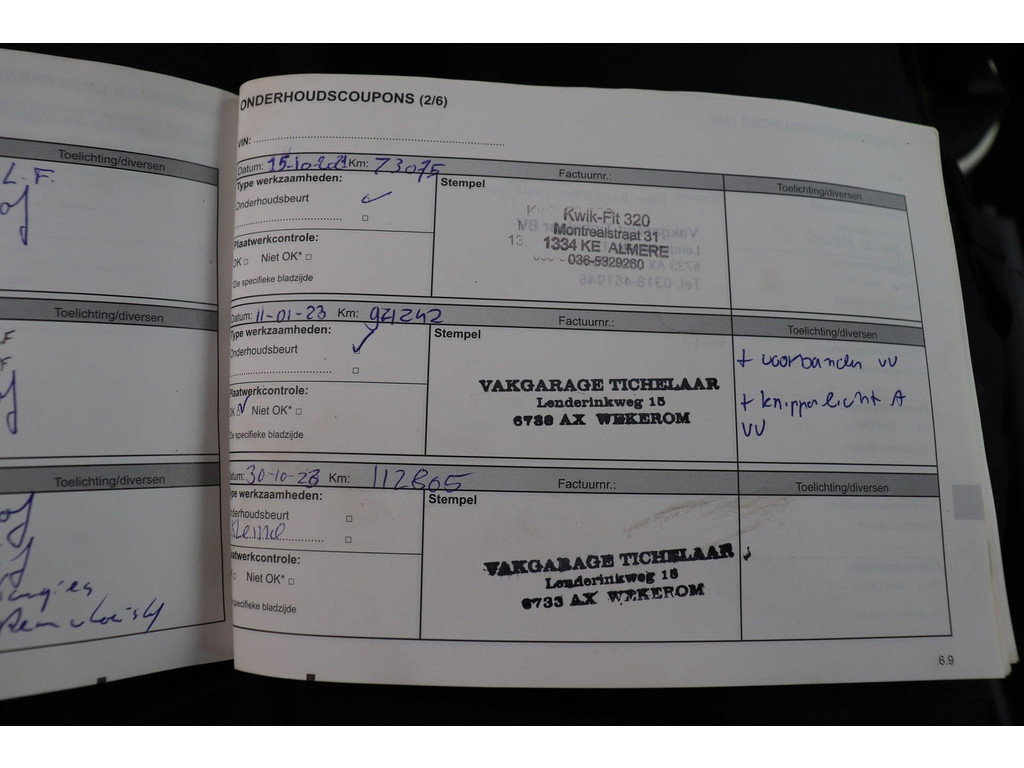 Toelichting/diversen
L.F.
Toelichting/diversen
Toelichting/diversen
ONDERHOUDSCOUPONS (2/6)
VIN:
Datum: 15-10-2021 Km: 73075
Factuurnr.:
Toelichting/diversen
Type werkzaamheden:
Onderhoudsbeurt
Stempel
Kwik-Fit 320
Montrealstraat 31
1334 KE ALMERE
036-5329260
Plaatwerkcontrole:
OK Niet OK*
De specifieke bladzijde
Datum: 11-01-23 Km: 94242
Factuurnr.:
Toelichting/diversen
Type werkzaamheden:
Onderhoudsbeurt
Stempel
VAKGARAGE TICHELAAR
Lenderinkweg 15
6733 AX WEKEROM
+ voorbanden VV
+ knipperlicht A
VV
Plaatwerkcontrole:
OK Niet OK*
De specifieke bladzijde
atum: 30-10-23 Km: 112805
Factuurnr.:
Toelichting/diversen
ype werkzaamheden:
nderhoudsbeurt
Kleine
Stempel
VAKGARAGE TICHELAAR
Lenderinkweg 15
6733 AX WEKEROM
aatwerkcontrole:
Niet OK*
specifieke bladzijde
6.9